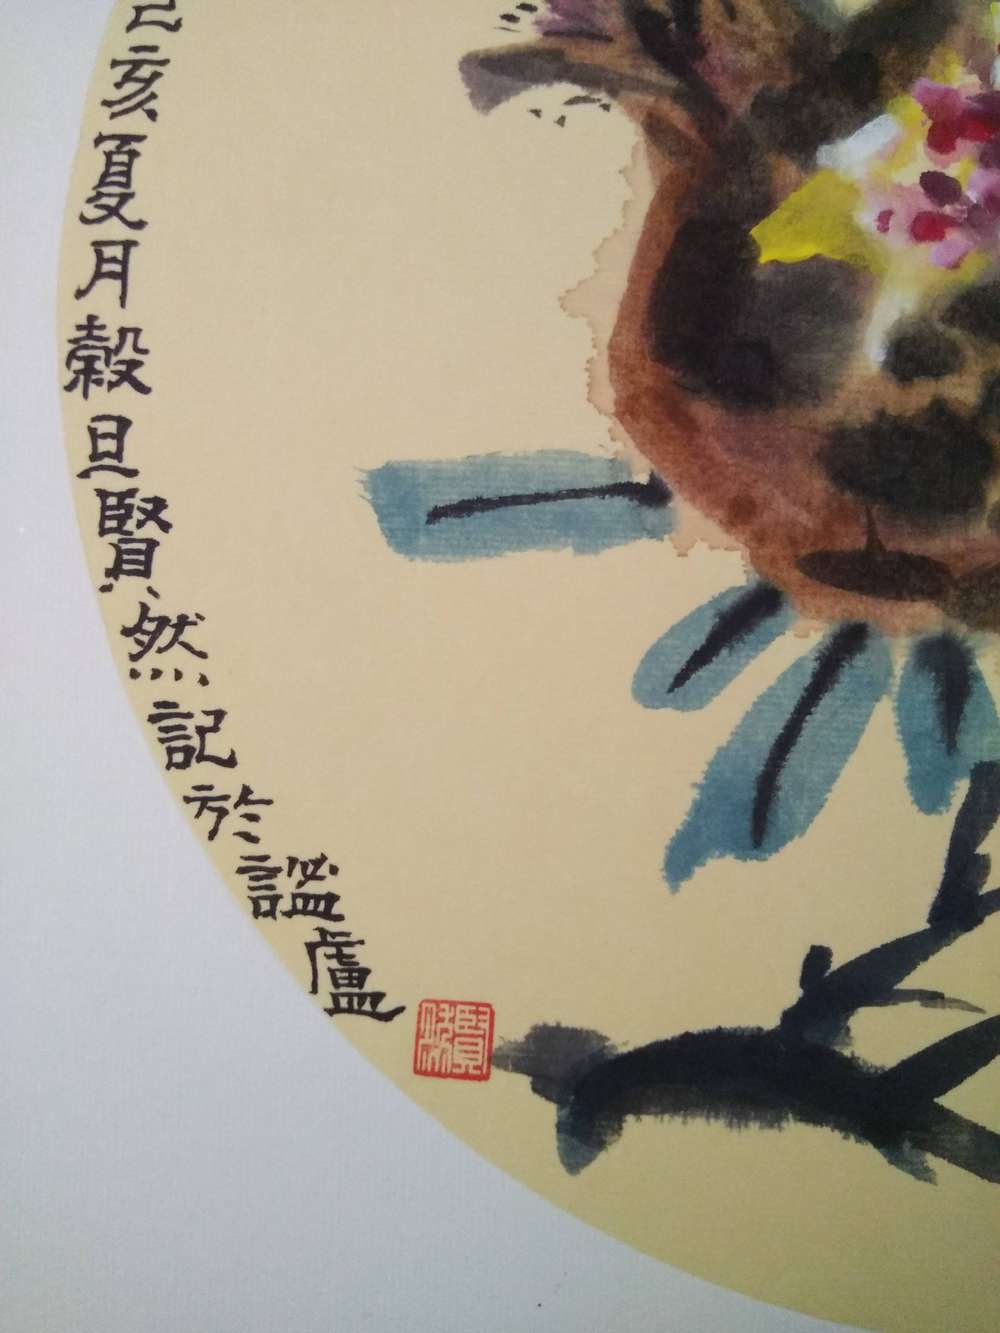 己亥夏月榖旦賢然記於謐盧
賢然